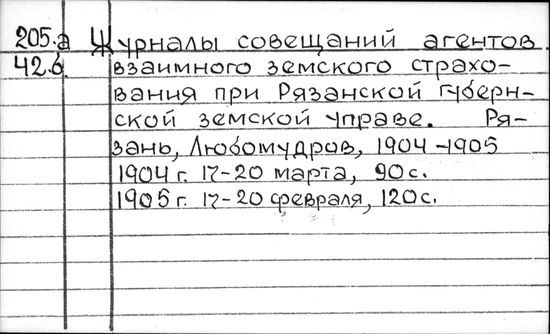 205.а Журналы совещаний агентов
42.б взаимного земского страхо-
вания при Рязанской губерн-
ской земской управе. Ря-
зань, Любомудров, 1904-1905
1904 г. 17-20 марта, 90 с.
1905 г. 17-20 февраля, 120 с.